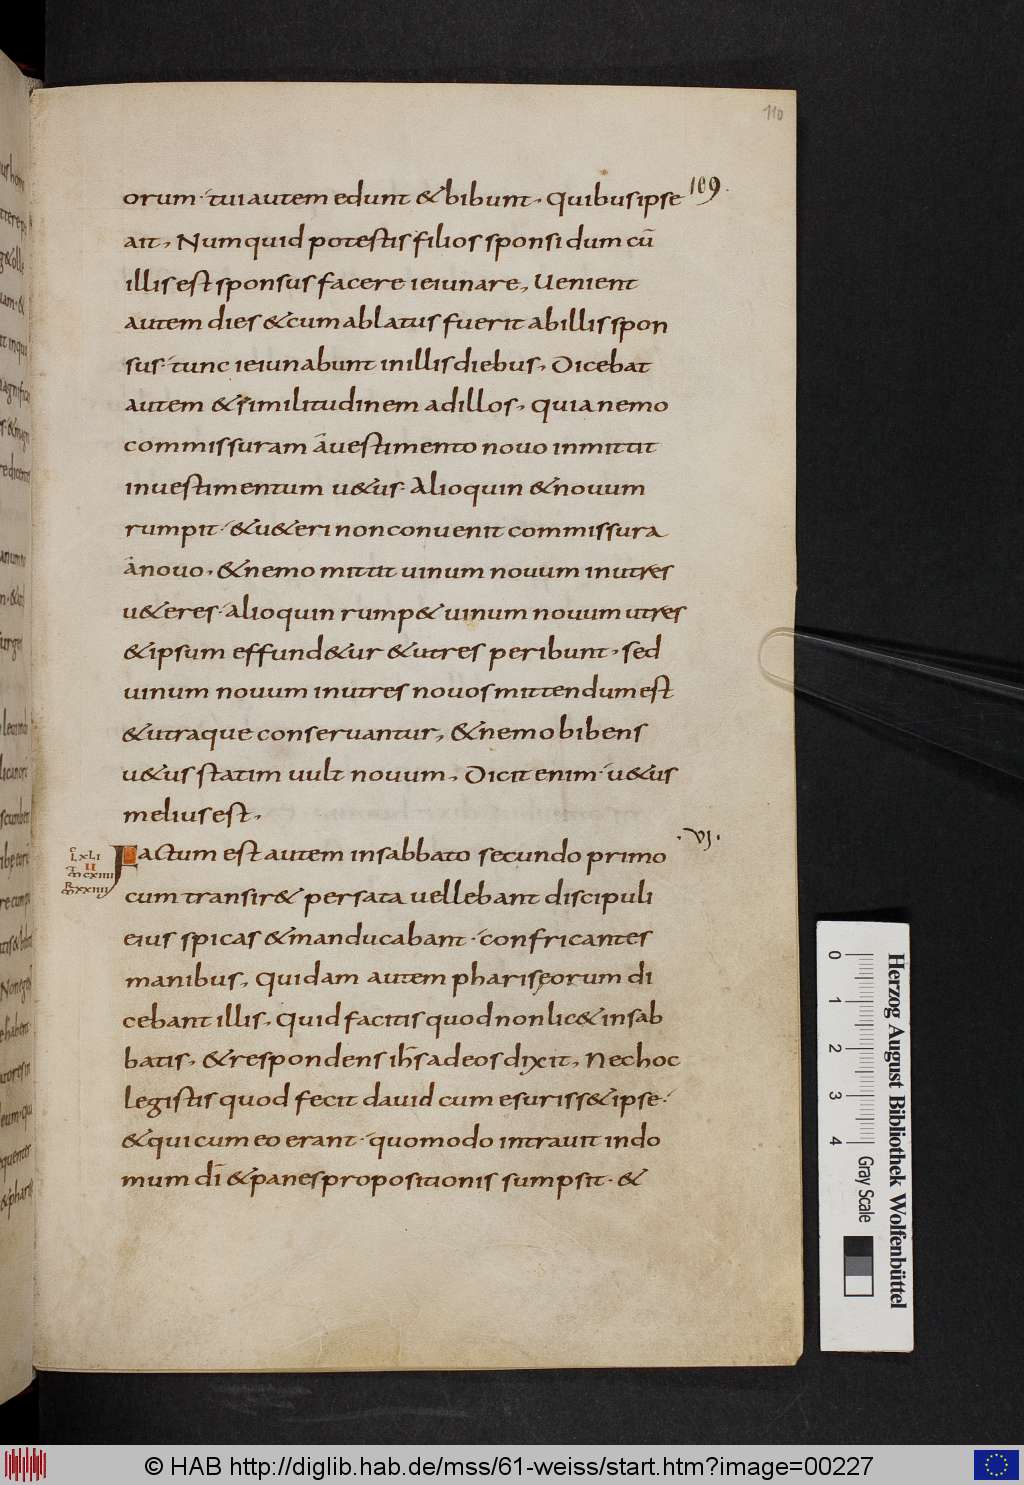 110
109.
orum· tui autem edunt & bibunt, Quibus ipse
ait, Numquid potestis filios sponsi dum cū
illis est sponsus facere ieiunare, Uenient
autem dies & cum ablatus fuerit ab illis spon
sus· tunc ieiunabunt in illis diebus, Dicebat
autem & similitudinem ad illos, quia nemo
commissuram a uestimento nouo inmittit
in uestimentum u&us· Alioquin & nouum
rumpit· & u&eri non conuenit commissura
a nouo, & nemo mittit uinum nouum in utres
u&eres· alioquin rump& uinum nouum utres
& ipsum effund&ur & utres peribunt, sed
uinum nouum in utres nouos mittendum est
& utraque conseruantur, & nemo bibens
u&us statim uult nouum, Dicit enim· u&us
melius est,
·VI·
Factum est autem in sabbato secundo primo
L XLI
II
M CXIIII
M XXIIII
cum transir& per sata uellebant discipuli
eius spicas & manducabant· confricantes
manibus, Quidam autem pharisęorum di
cebant illis, Quid facitis quod non lic& in sab
batis, & respondens ih̄s ad eos dixit, Nec hoc
legistis quod fecit dauid cum esuriss& ipse·
& qui cum eo erant· quomodo intrauit in do
mum dī & panes propositionis sumpsit· &
Herzog August Bibliothek Wolfenbüttel
0 1 2 3 4 Gray Scale
© HAB http://diglib.hab.de/mss/61-weiss/start.htm?image=00227